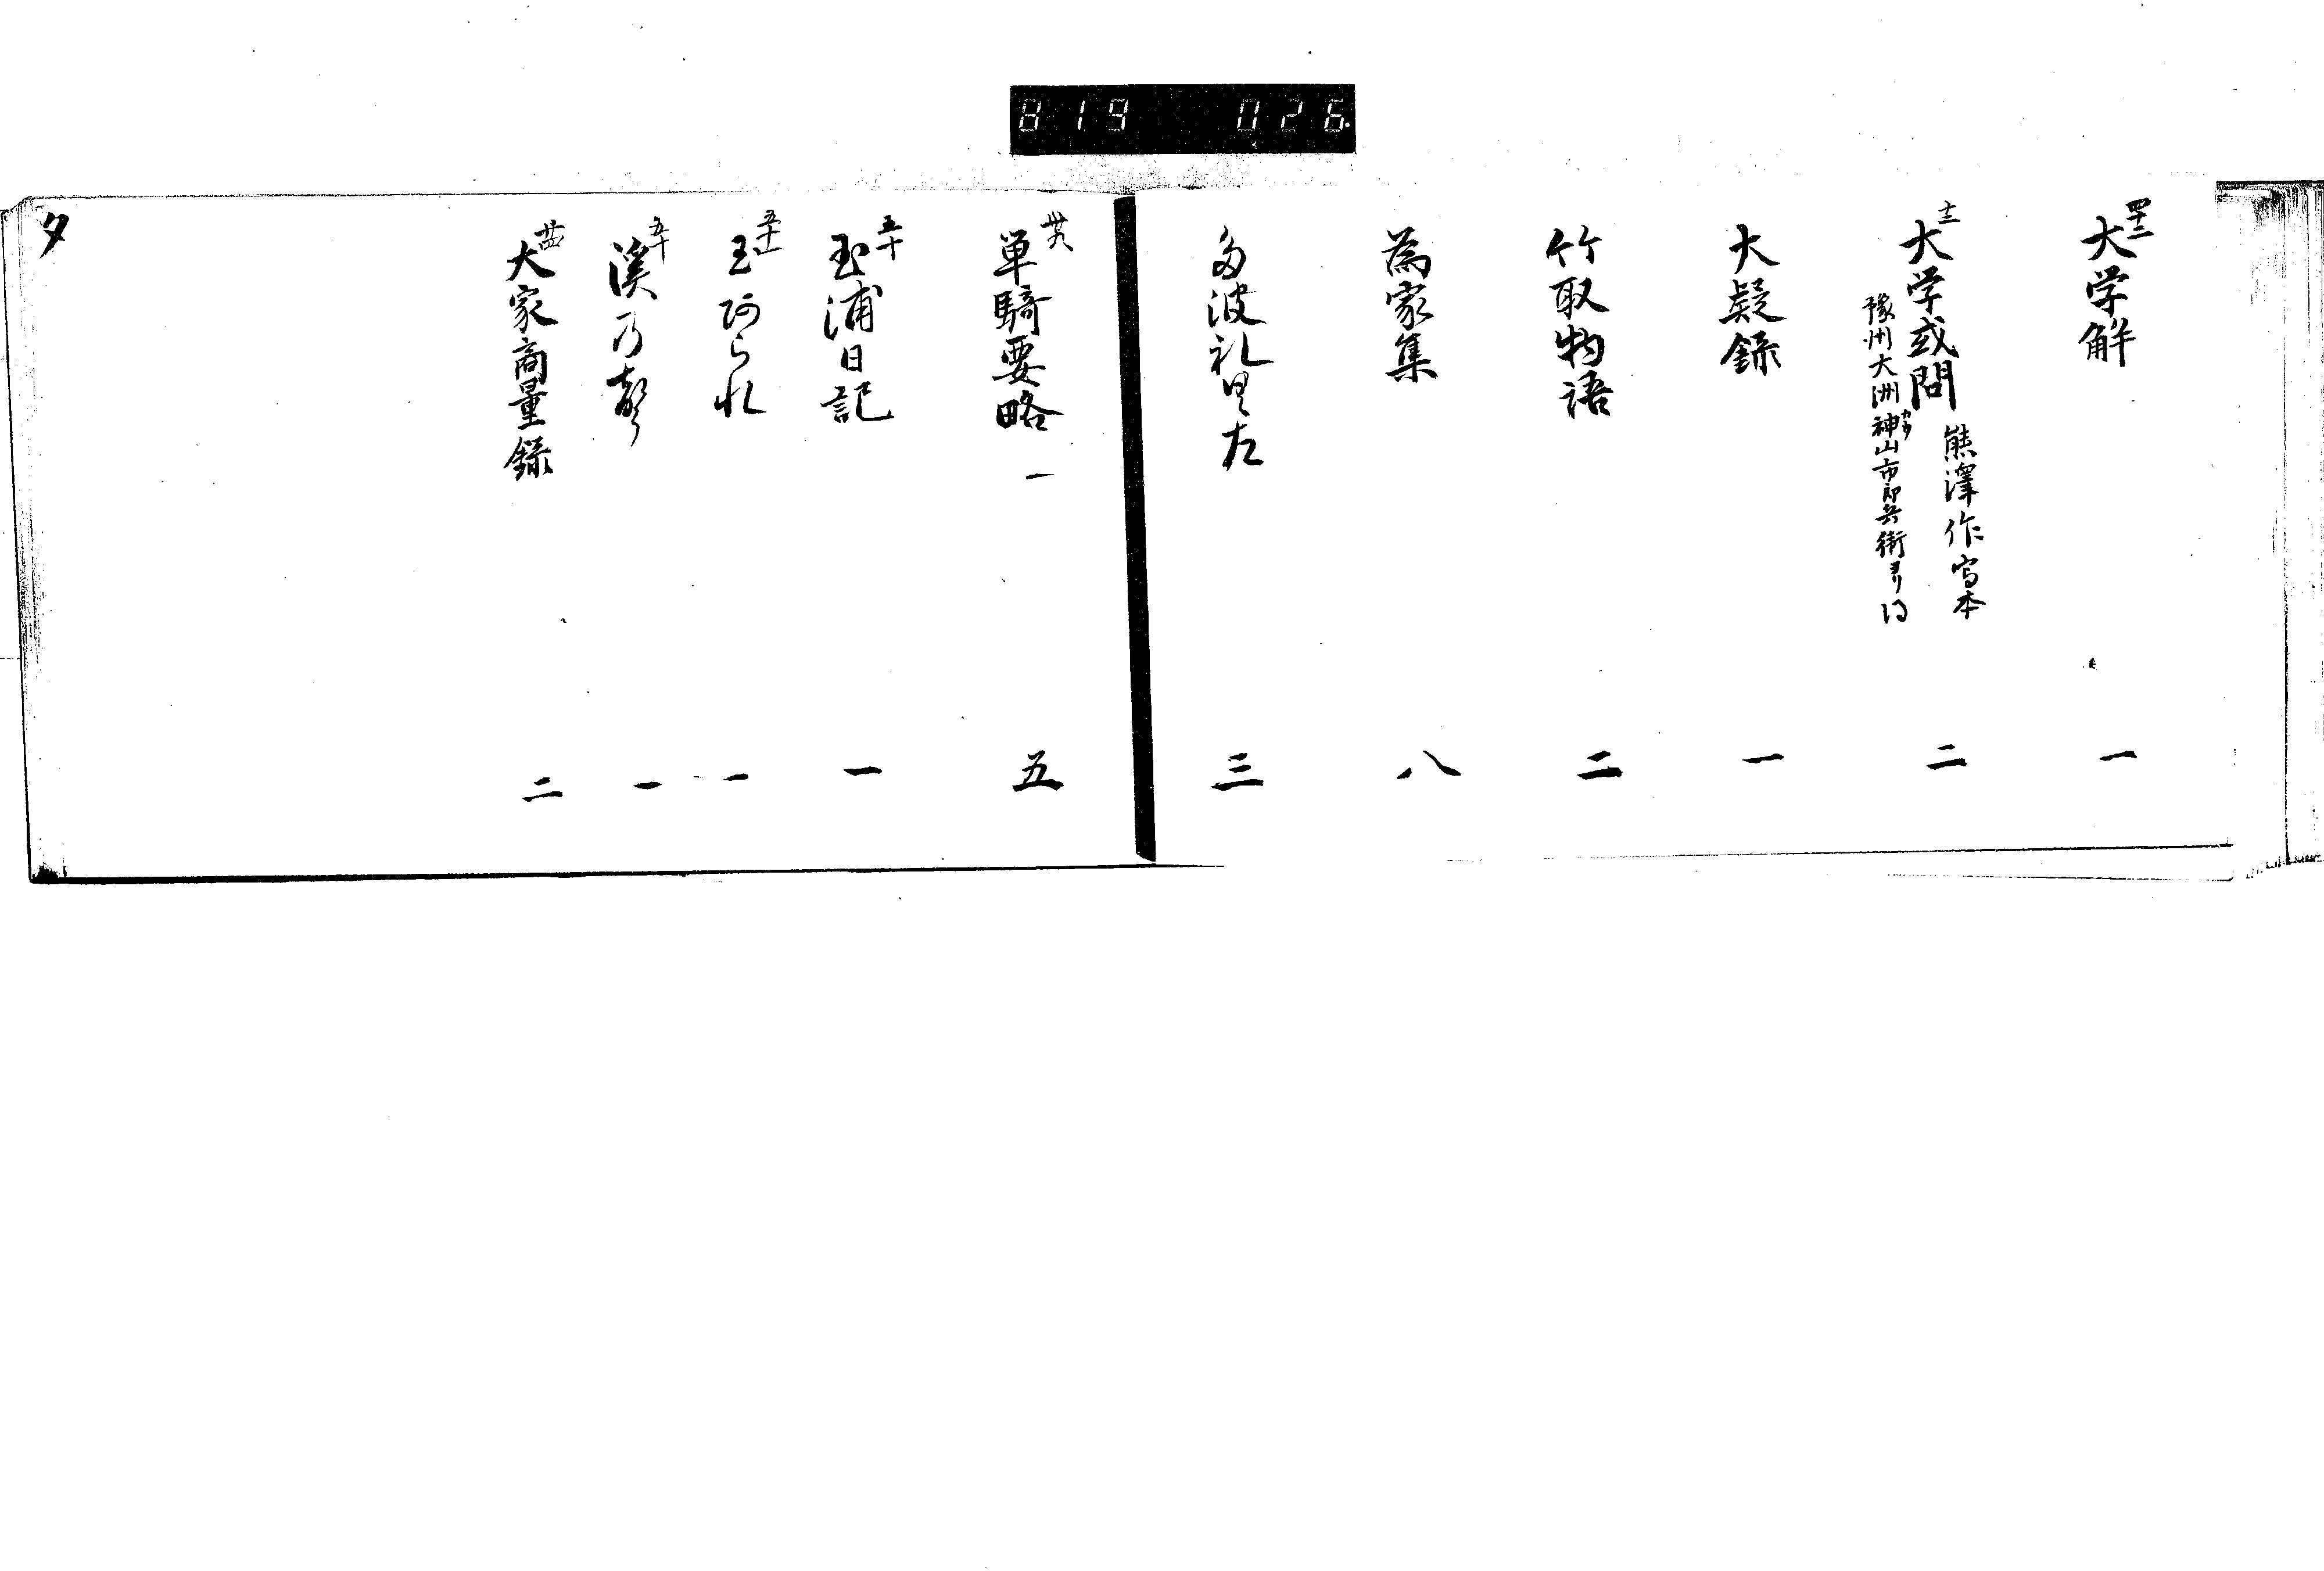 819 026.
四十二
大学解 一
十三
大学或問 熊澤作写本 二
豫州大洲神山市郎兵衛ヨリ得
大疑録 一
竹取物語 二
為家集 八
多波礼具左 三
廿八
単騎要略 一 五
五十
玉浦日記 一
五十一
玉阿られ 一
五十
渓乃聲 一
廿四
大家商量録 二
タ